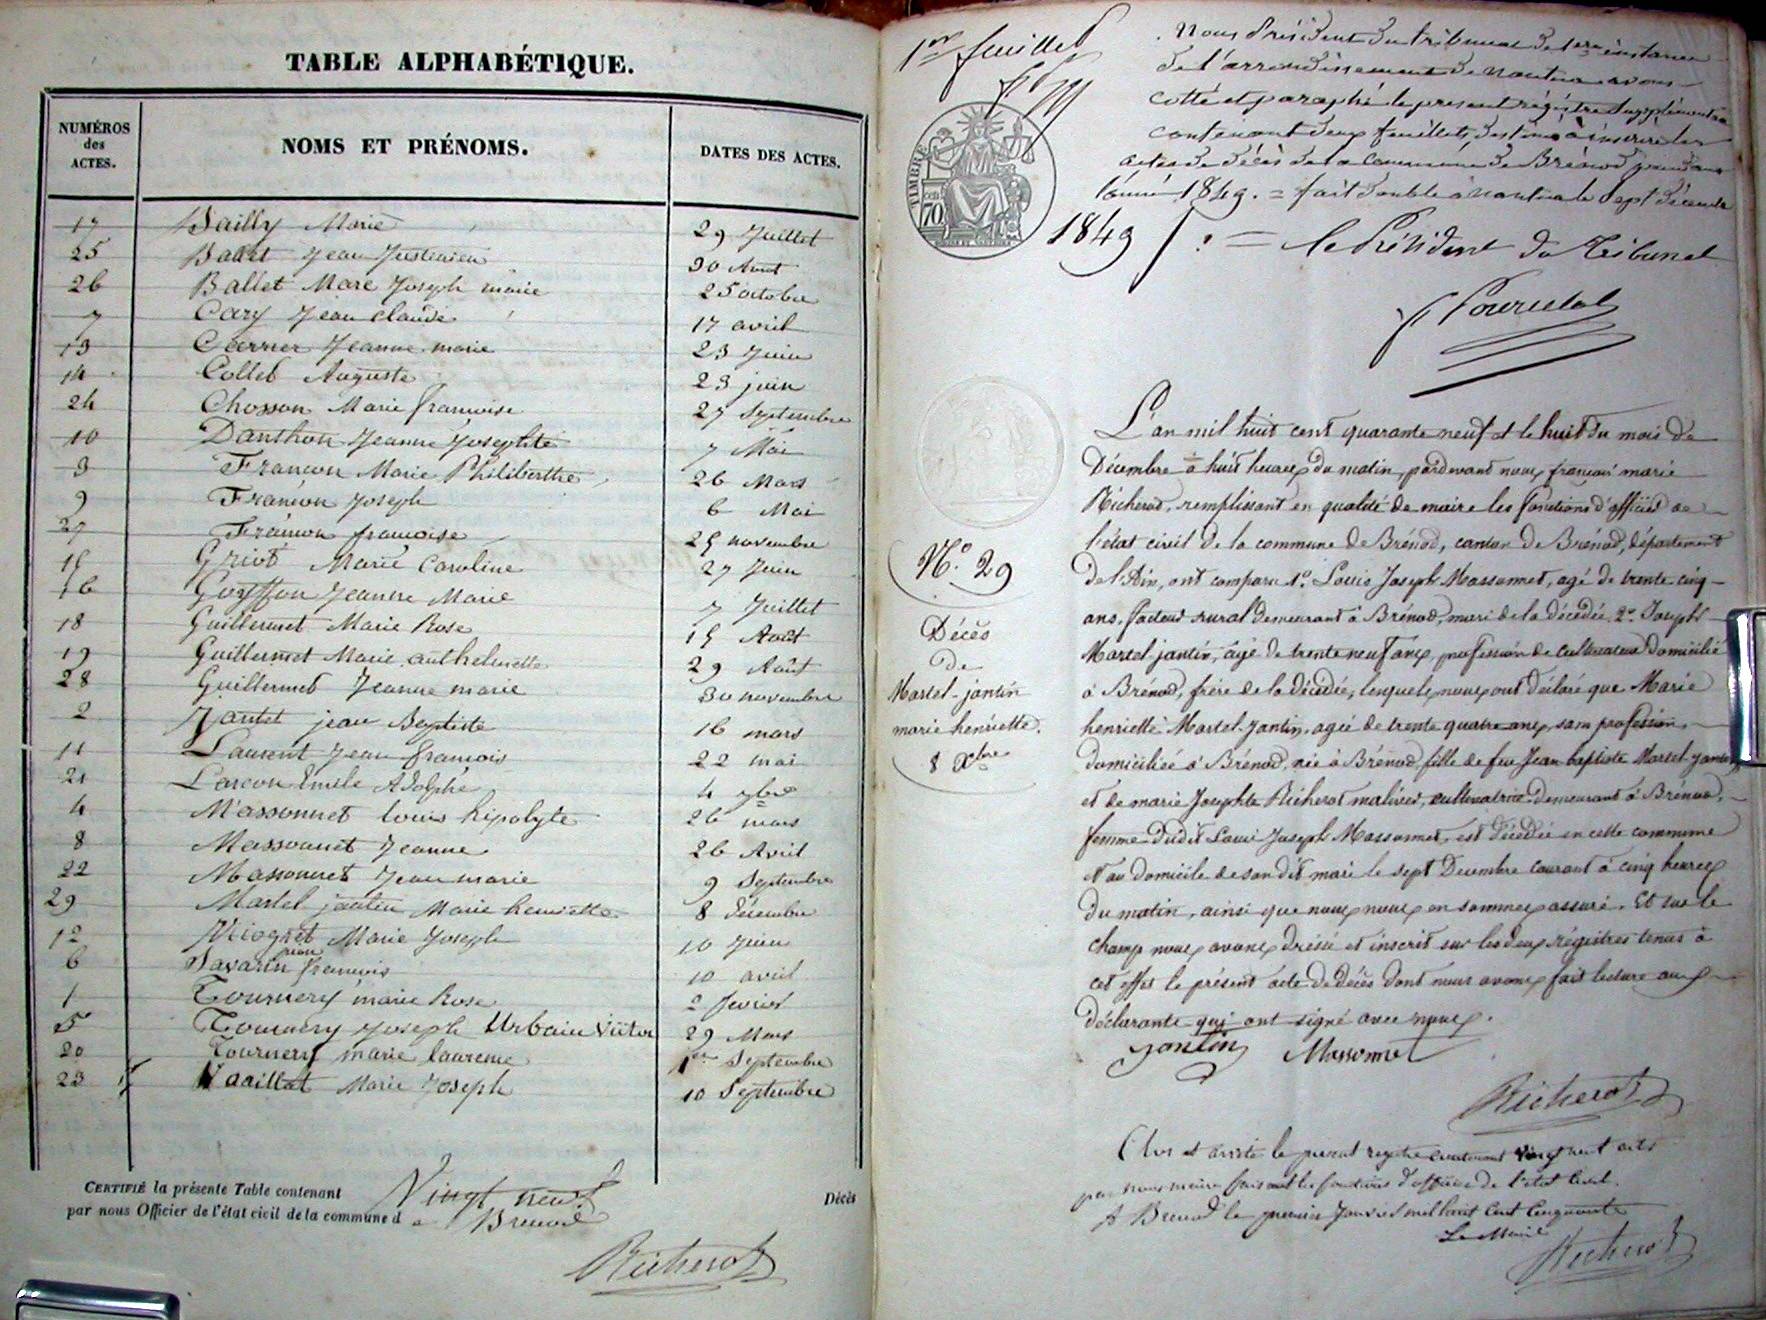 TABLE ALPHABÉTIQUE.
NUMÉROS des ACTES.
NOMS ET PRÉNOMS.
DATES DES ACTES.
17 Bailly Marie 29 Juillet
25 Ballet Jean 30 Aout
26 Ballet Marc Joseph marie 25 octobre
7 Cary Jean Claude 17 avril
13 Carrier Jeanne marie 23 Juin
14 Collet Auguste 23 juin
24 Chosson Marie françoise 27 Septembre
10 Danthon Jeanne Josephte 7 Mai
3 Françon Marie Philiberthe 26 Mars
9 Françon Joseph 6 Mai
27 Françon françoise 25 novembre
15 Griot Marie Caroline 27 Juin
16 Goyffon Jeanne Marie 7 Juillet
18 Guillermet Marie Rose 15 Août
19 Guillermet Marie anthelmette 29 Août
28 Guillermet Jeanne marie 30 novembre
2 Jantet jean Baptiste 16 mars
11 Laurent Jean françois 22 mai
21 Larçon Emile Adolphe 4 7bre
4 Massonnet louis hipolyte 26 mars
8 Massonnet Jeanne 26 Avril
22 Massonnet Jean marie 9 Septembre
29 Martel jantin Marie henriette 8 décembre
12 Marie Joseph 10 Juin
6 Savarin jean françois 10 avril
1 Tournery marie Rose 2 fevrier
5 Tournery Joseph Urbain Victor 29 Mars
20 Tournery marie laurence 1er Septembre
23 Vaaillat Marie Joseph 10 Septembre
CERTIFIÉ la présente Table contenant Vingt neuf Décès
par nous Officier de l'état civil de la commune d e Brenod
Richerot
1er feuillet
Nous Président du tribunal de 1ere instance
de l'arrondissement de Nantua avons
cotté et paraphé le present régistre supplémentre
contenant deux feuillets destiné à inscrire les
actes de décès de la commune de Brénod pendant
l'année 1849. = fait double à Nantua le sept décembre
1849 = le Président du Tribunal
TIMBRE
70
L'an mil huit cent quarante neuf et le huit du mois de
Décembre à huit heures du matin, pardevant nous françois marie
Richerot, remplissant en qualité de maire les fonctions d'officier de
l'état civil de la commune de Brénod, canton de Brénod, département
de l'Ain, ont comparu 1º. Louis Joseph Massonnet, agé de trente cinq
ans, facteur rural demeurant à Brénod, mari de la décédée. 2º. Joseph
Martel-jantin, agé de trente neuf ans, profession de cultivateur domicilié
à Brénod, frère de la décédée, lesquels nous ont déclaré que Marie
henriette Martel-Jantin, agée de trente quatre ans, sans profession,
domiciliée à Brénod, née à Brénod, fille de feu Jean baptiste Martel-jantin
et de marie Josephte Richerot mariés, cultivatrice demeurant à Brénod,
femme dudit Louis Joseph Massonnet, est décédée en cette commune
et au domicile de son dit mari le sept Decembre courant à cinq heures
du matin, ainsi que nous nous en sommes assuré. Et sur le
champ nous avons dréssé et inscrit sur les deux régistres tenus à
cet effet le présent acte de décès dont nous avons fait lecture aux
déclarants qui ont signé avec nous.
Nº. 29
Décès
de
Martel-jantin
marie henriette.
8 Xbre
jantin Massonnet
Richerot
Clos et arrêté le present registre contenant vingt neuf acts
par nous maire faisant les fonctions d'officier de l'état Civil.
A Brenod le premier Janvier mil huit Cent Cinquante
Le Maire
Richerot